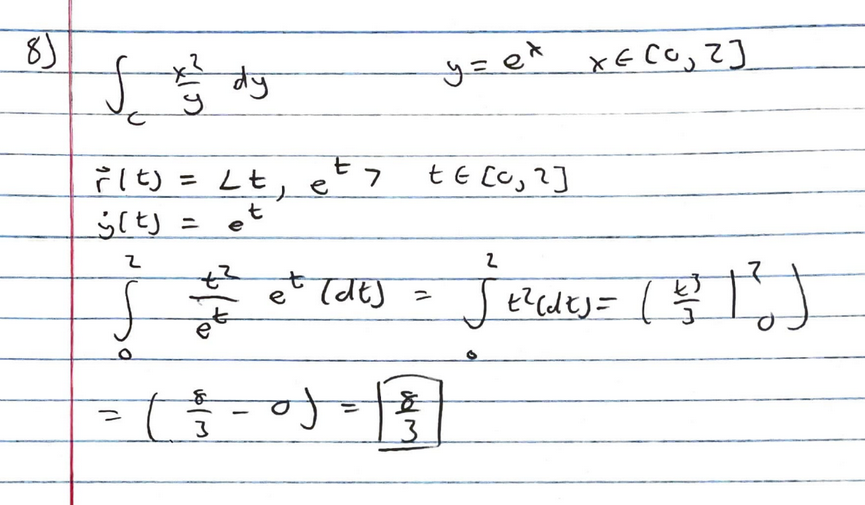 8) ∫_C x²/y dy y = e^x x ∈ [0, 2]
r⃗(t) = <t, e^t> t ∈ [0, 2]
ẏ(t) = e^t
∫_0^2 t²/e^t e^t (dt) = ∫_0^2 t² (dt) = ( t³/3 |_0^2 )
= ( 8/3 - 0 ) = 8/3